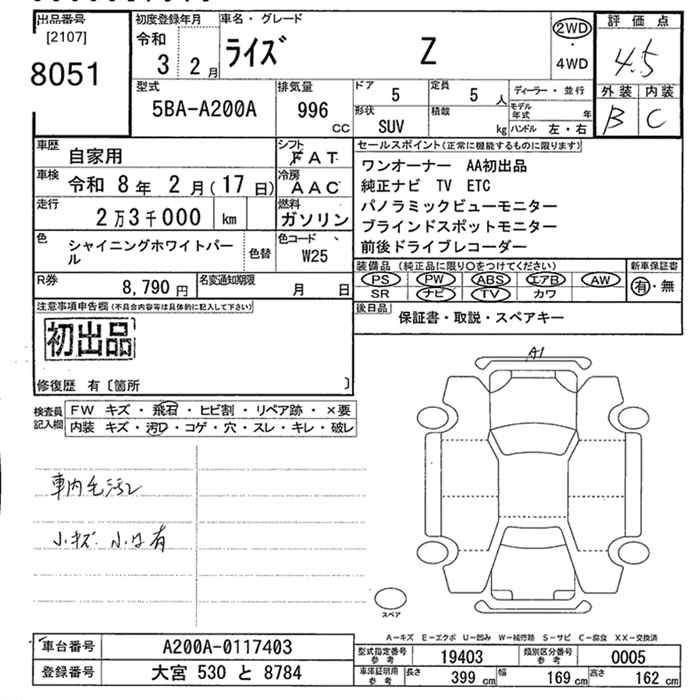 出品番号
[2107]
8051
初度登録年月
令和
3 2月
車名・グレード
ライズ Z
2WD
・
4WD
評価点
4.5
外装 内装
B C
型式
5BA-A200A
排気量
996 cc
ドア
5
定員
5人
形状
SUV
積載
kg
ディーラー・並行
モデル年式 年
ハンドル 左・右
車歴
自家用
シフト
FAT
車検
令和 8年 2月(17日)
冷房
AAC
走行
2万3千000 km
燃料
ガソリン
色
シャイニングホワイトパール
色替
色コード
W25
R券
8,790円
名変通知期限
月 日
セールスポイント(正常に機能するものに限ります)
ワンオーナー AA初出品
純正ナビ TV ETC
パノラミックビューモニター
ブラインドスポットモニター
前後ドライブレコーダー
装備品(純正品に限り○をつけてください)
PS PW ABS エアB AW
SR ナビ TV カワ
新車保証書
有・無
後日品
保証書・取説・スペアキー
注意事項申告欄(不具合内容等は具体的に記入して下さい)
初出品
修復歴 有〔箇所 〕
検査員記入欄
FW キズ・飛石・ヒビ割・リペア跡・×要
内装 キズ・汚レ・コゲ・穴・スレ・キレ・破レ
車内毛汚レ
小キズ 小凹有
A1
スペア
A-キズ E-エクボ U-凹み W-補修跡 S-サビ C-腐食 XX-交換済
車台番号
A200A-0117403
登録番号
大宮 530 と 8784
型式指定番号
参考
19403
類別区分番号
参考
0005
車庫証明用
参考
長さ
399 cm
幅
169 cm
高さ
162 cm